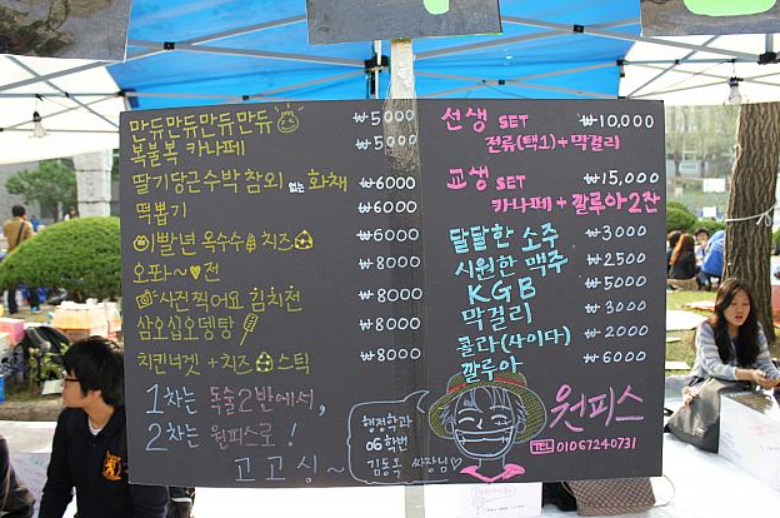 만듀만듀만듀만듀 ₩5000
복불복 카나페 ₩5000
딸기당근수박참외 없는 화채 ₩6000
떡뽑기 ₩6000
이빨년 옥수수 치즈 ₩6000
오퐈~♥전 ₩8000
사진찍어요 김치전 ₩8000
삼오십오뎅탕 ₩8000
치킨너겟+치즈스틱 ₩8000
1차는 독술2반에서,
2차는 원피스로!
고고싱~
선생 SET ₩10,000
전류(택1)+막걸리
교생 SET ₩15,000
카나페+깔루아2잔
달달한 소주 ₩3000
시원한 맥주 ₩2500
KGB ₩5000
막걸리 ₩3000
콜라(사이다) ₩2000
깔루아 ₩6000
행정학과
06학번
김동옥 싸장님♡
원피스
TEL 01067240731